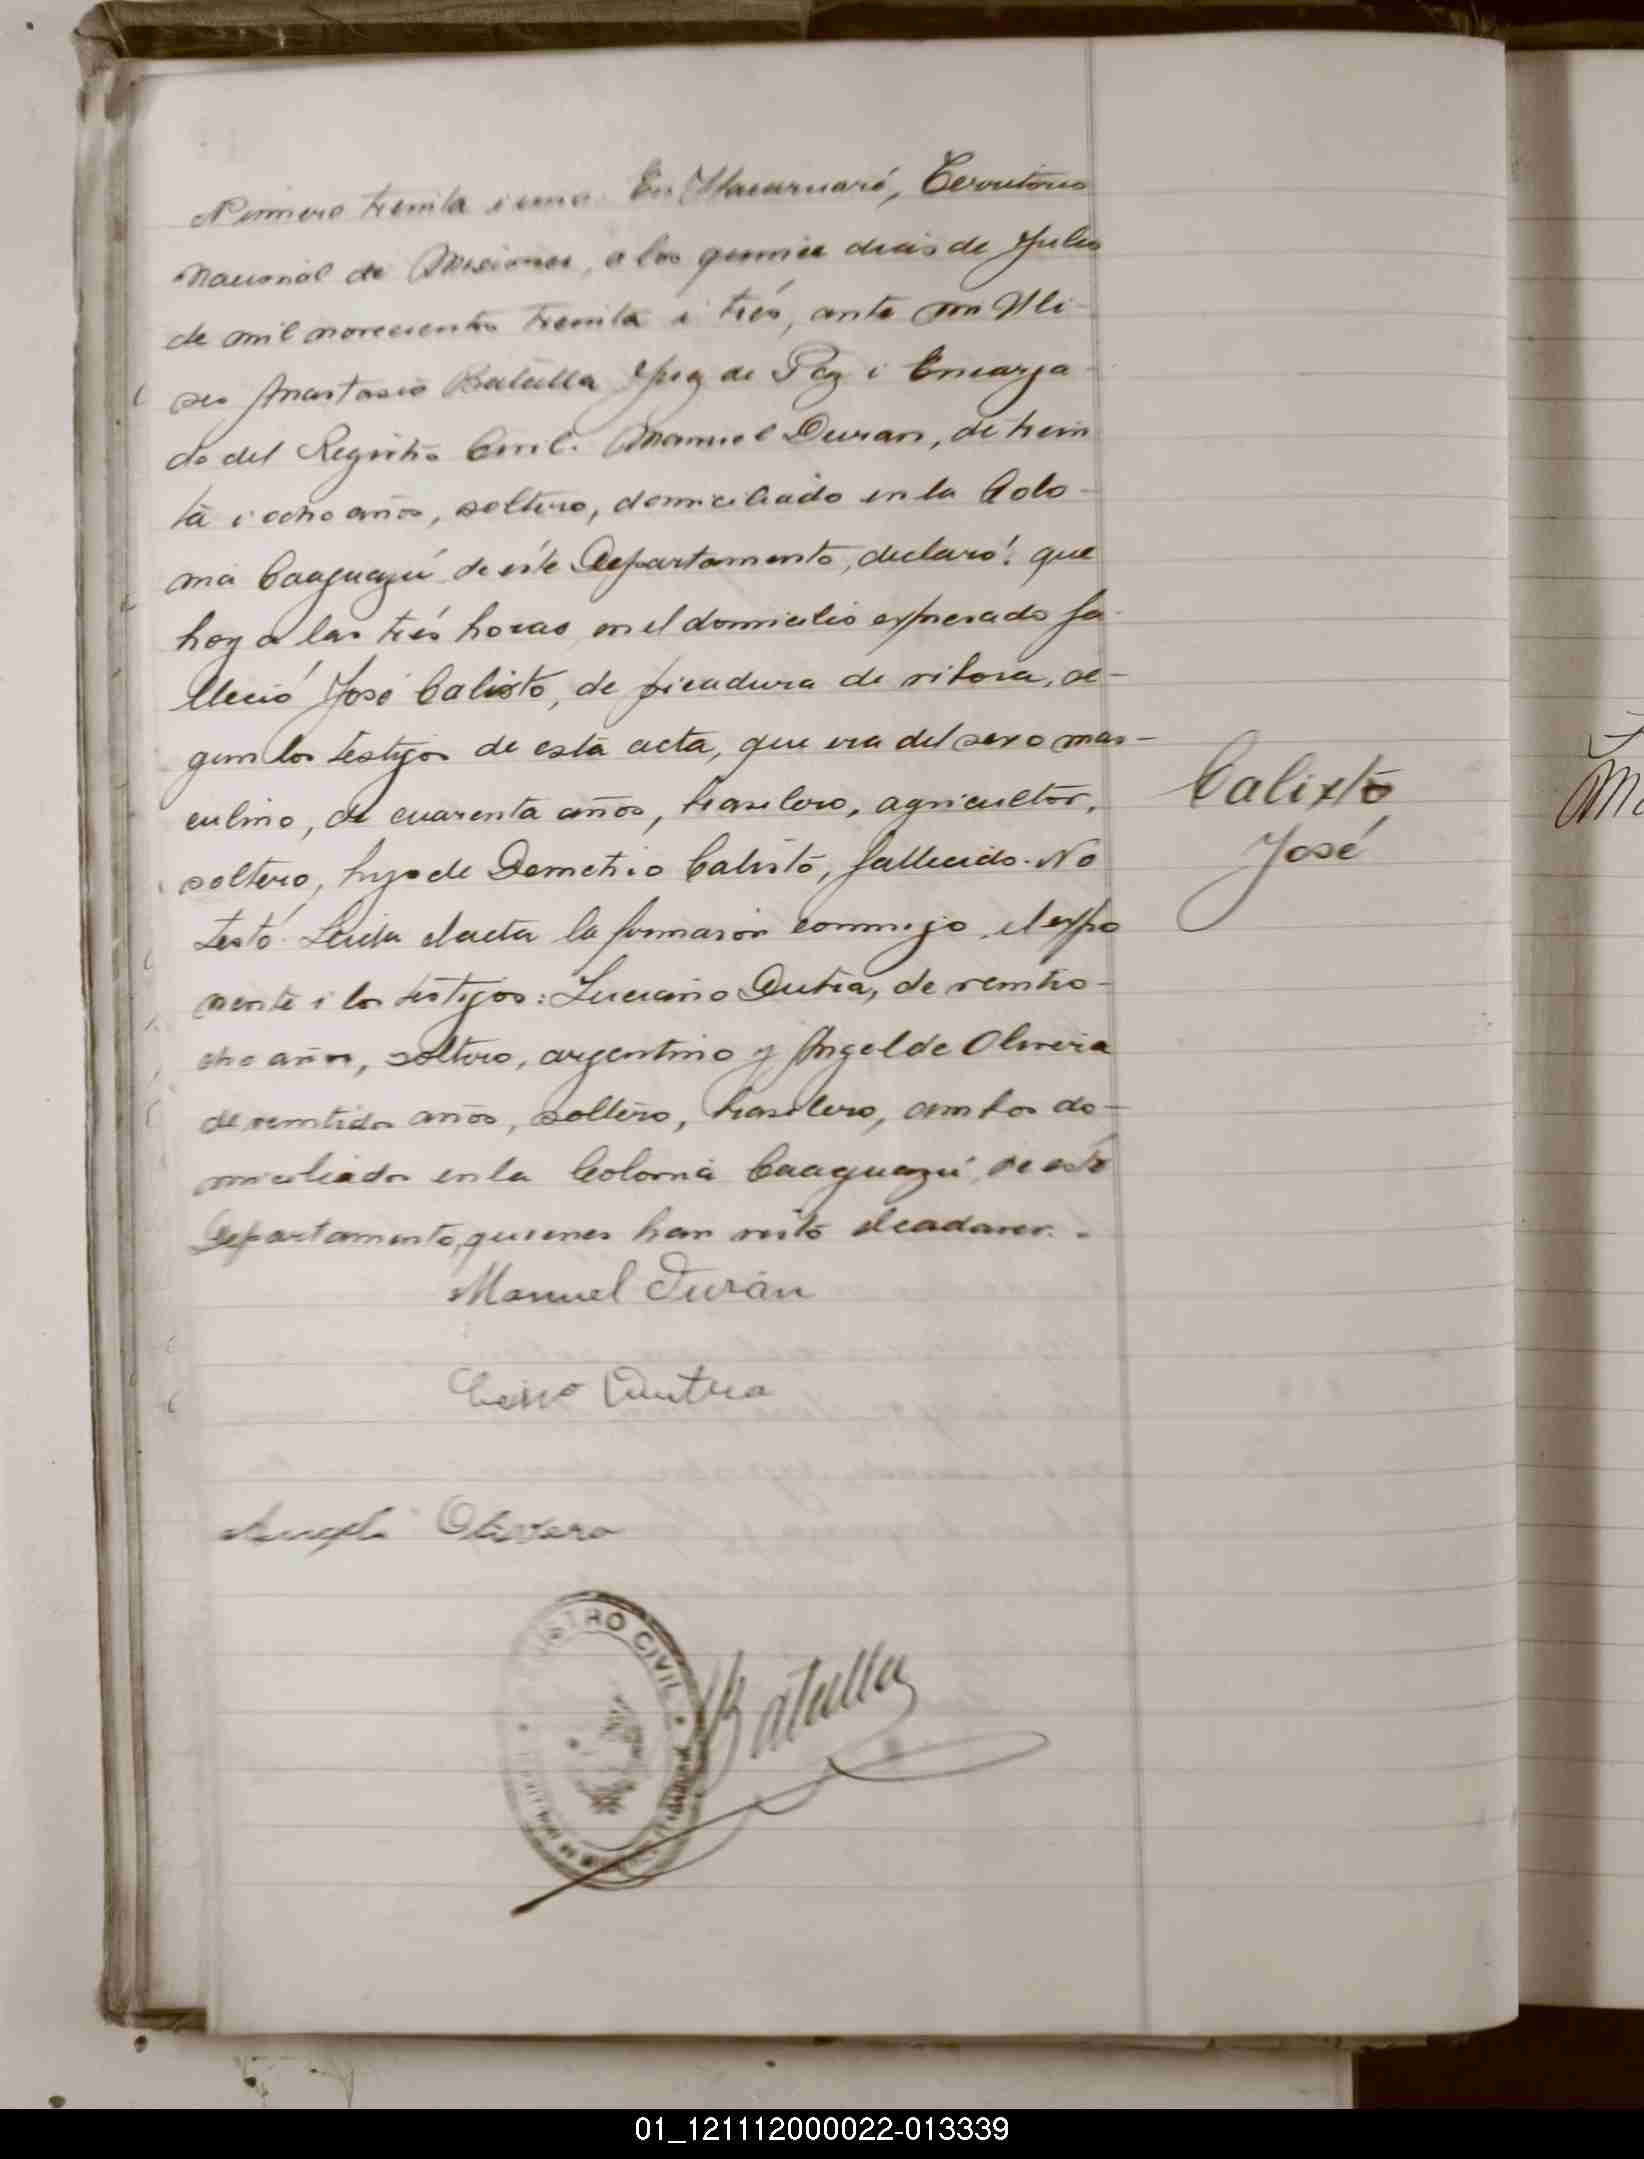 Número treinta i uno. En Itacaruaré, Territorio
Nacional de Misiones, a los quince dias de Julio
de mil novecientos treinta i trés, ante mi Uli-
ses Anastasio Batalla Juez de Paz i Encarga-
do del Registro Civil. Manuel Duran, de trein
ta i ocho años, soltero, domiciliado en la Colo-
nia Caaguazú de éste Departamento, declaró: que
hoy a las trés horas en el domicilio expresado fa-
lleció José Calixto, de picadura de vibora, se-
gun los testigos de esta acta, que era del sexo mas-
culino, de cuarenta años, brasilero, agricultor,
soltero, hijo de Demetrio Calixto, fallecido. No
testó. Leida el acta la firmaron conmigo, el expo
nente i los testigos: Luciano Dutra, de veintio-
cho años, soltero, argentino y Angel de Olivera
de veintidos años, soltero, brasilero, ambos do-
miciliados en la Colonia Caaguazú, de este
Departamento, quienes han visto el cadaver. -
Calixto
José
Manuel Durán
Dutra
Olivera
REGISTRO CIVIL
Batalla
01_121112000022-013339